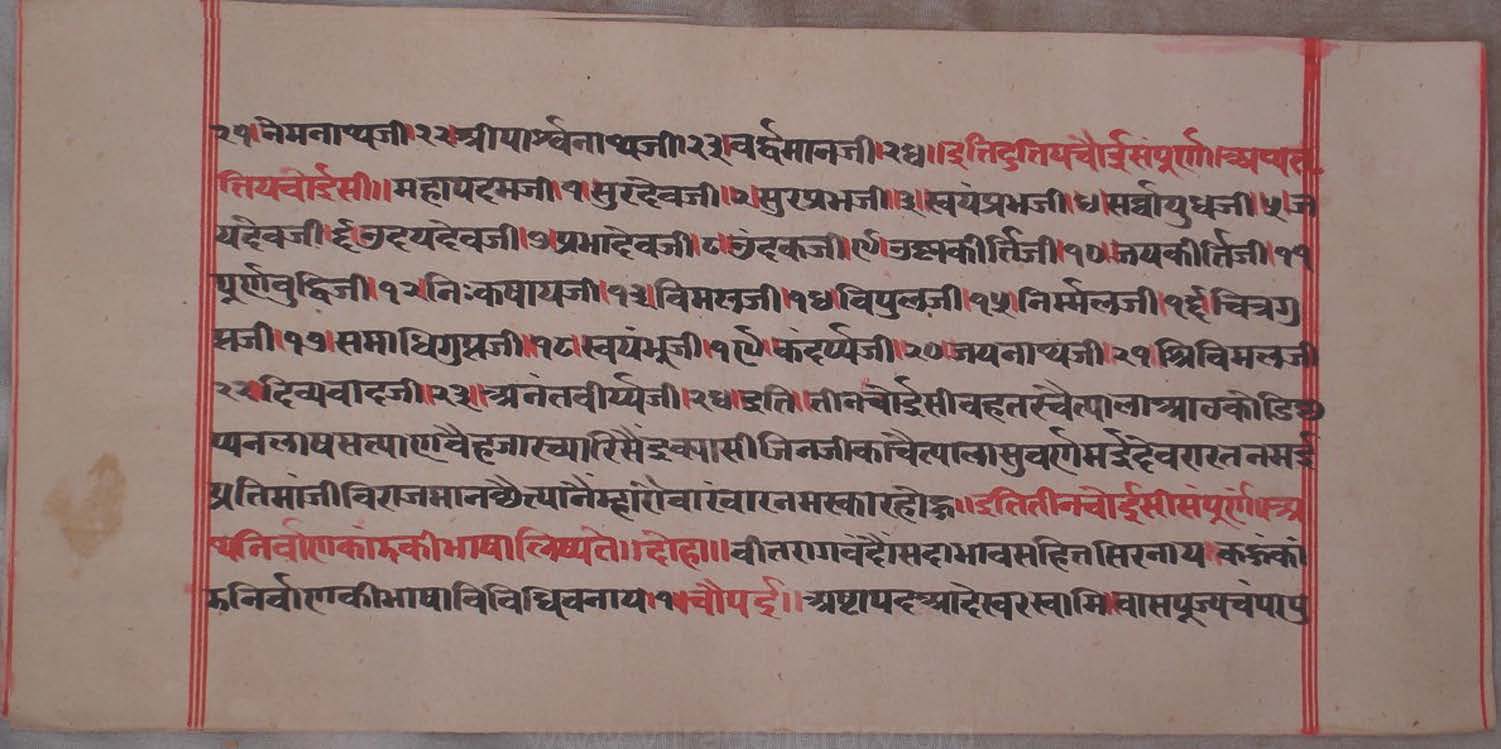 २१।नेमनाथजी।२२।श्रीपार्श्वनाथजी।२३।वर्द्धमानजी।२४॥इतिदुतियचौईसंपूर्ण॥अथत्रु
तियचोईसी॥महापदमजी।१।सुरदेवजी।२।सुरप्रभजी।३।स्वयंप्रभजी।४।सर्वायुधजी।५।ज
यदेवजी।६।उदयदेवजी।७।प्रभादेवजी।८।उंदकजी।९।प्रश्नकीर्तिजी।१०।जयकीर्तिजी।११
पूर्णवुद्धिजी।१२।निःकषायजी।१३।विमलजी।१४।विपुलजी।१५।निर्म्मलजी।१६।चित्रगु
प्तजी।१७।समाधिगुप्तजी।१८।स्वयंभूजी।१९।कंदर्प्पजी।२०।जयनाथजी।२१।श्रिविमलजी
२२।दिव्यवादजी।२३।अनंतवीर्य्यजी।२४।इति।तीनचोईसीवहतरचैत्यालाआठकोडिछ
प्पनलाषसत्याणवैहजारच्यारिसैंइक्यासीजिनजीकाचैत्यालासुवर्णमईदेवरारतनमई
प्रतिमांजीविराजमानछैत्यानैम्हांरौवारंवारनमस्कारहोऊ॥इतितीनचोईसीसंपूर्ण॥अ
थनिर्वाणकांडकीभाषालिष्यते॥दोहा॥वीतरागवंदौंसदाभावसहितसिरनाय कऊंकां
डनिर्वाणकीभाषाविविधिवनाय।१।चौपई॥अष्टापदआदेस्वरस्वामि।वासपूज्यचंपापु